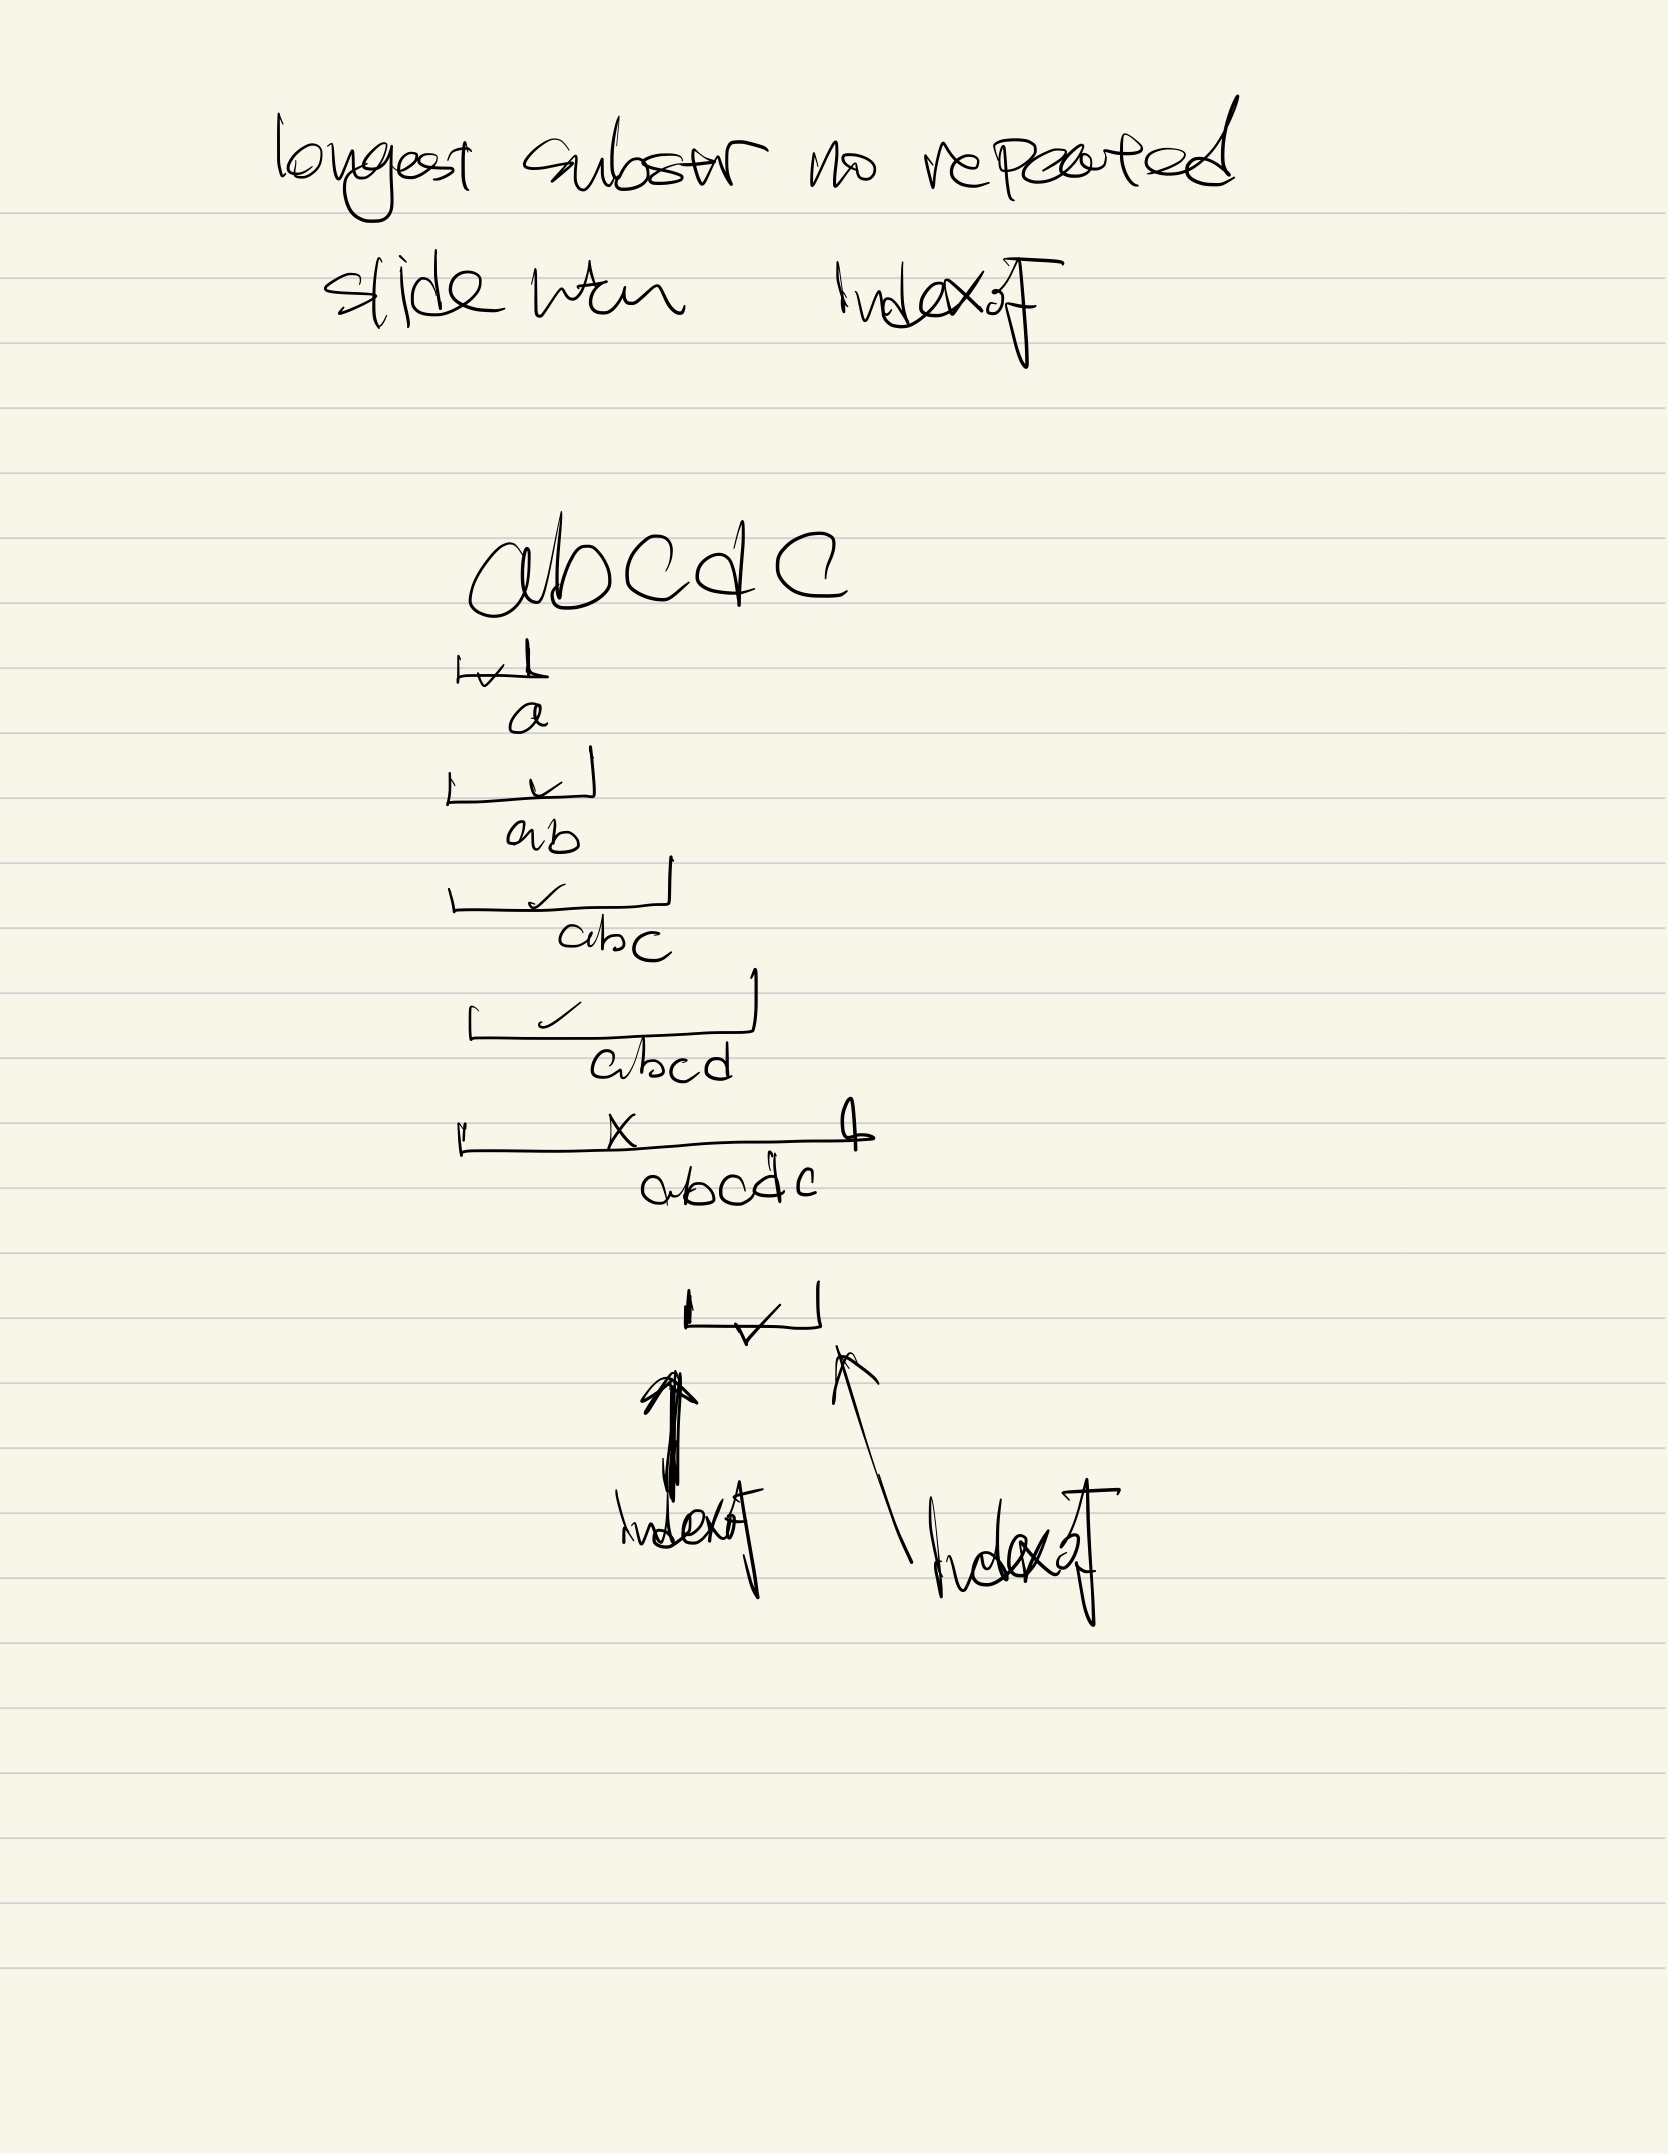 longest substr no repeated
slide Indexof
abcdc
a
ab
abc
abcd
abcdc
indexof Indexof